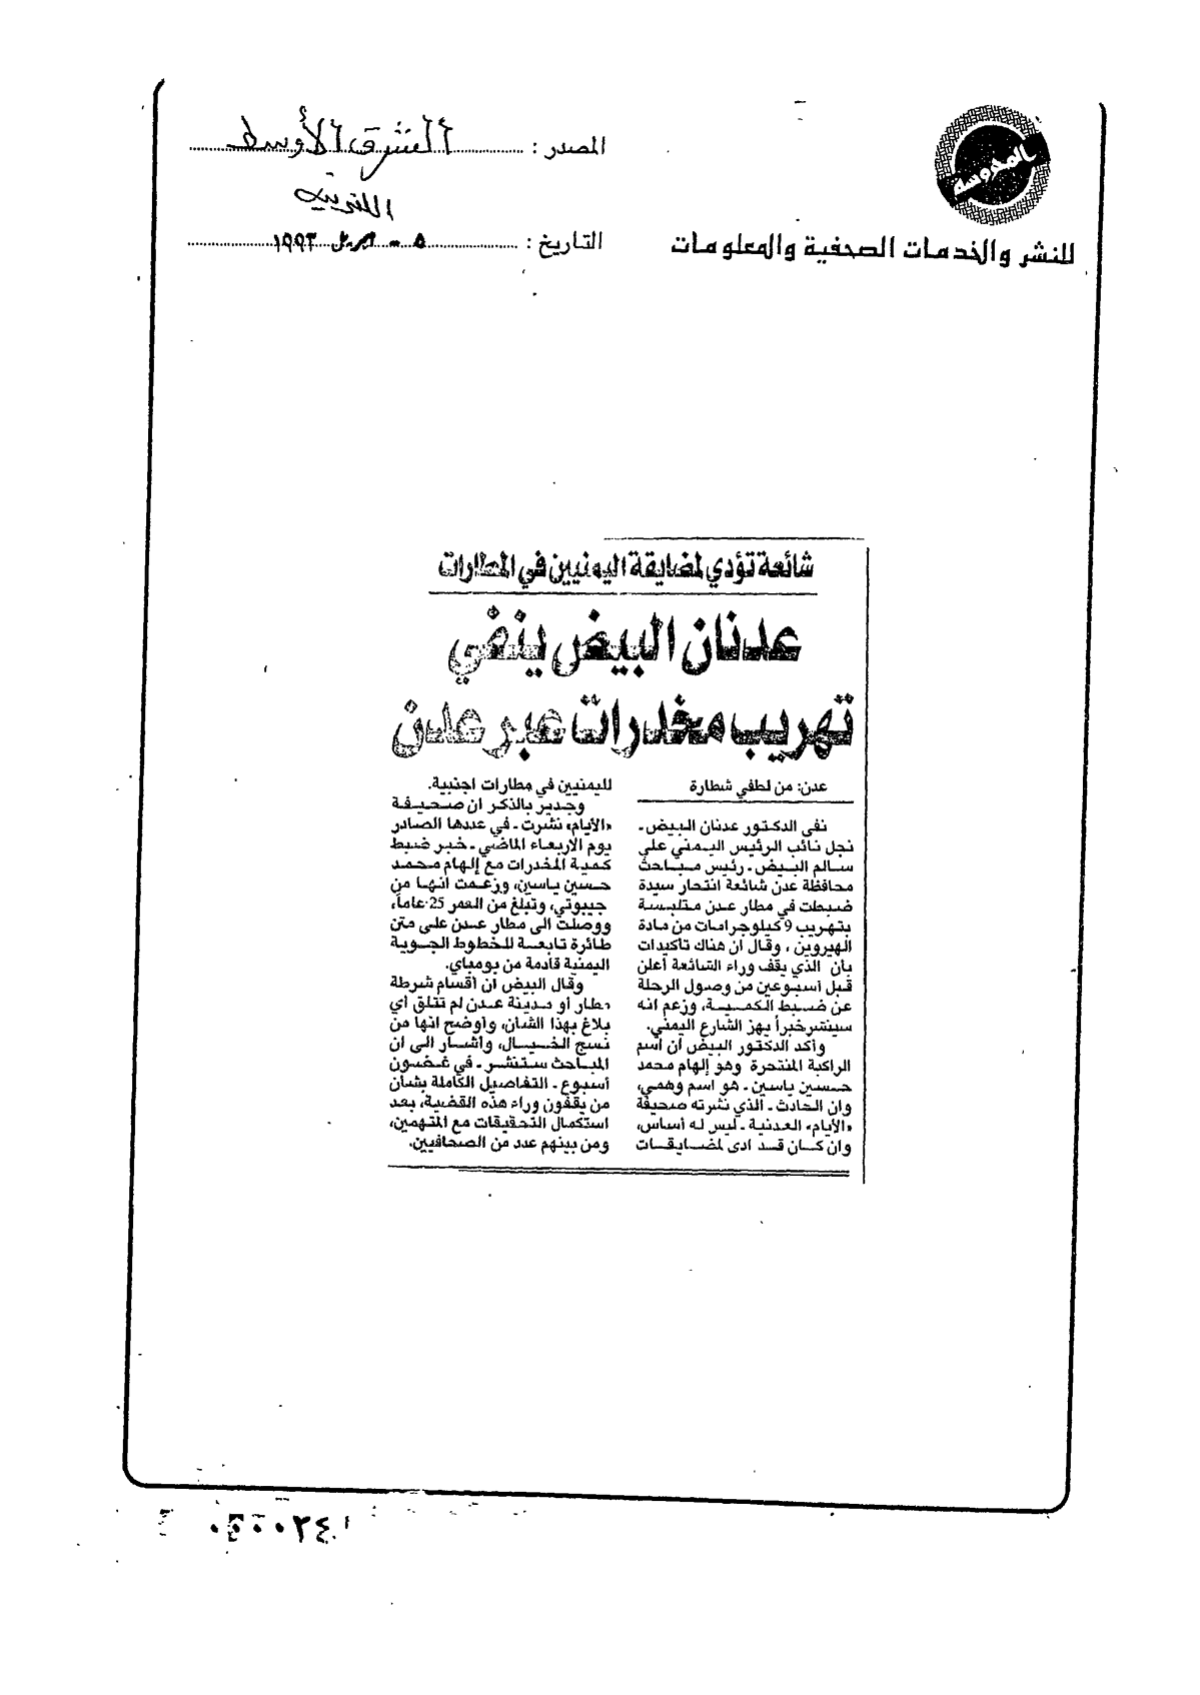 المحروسة
للنشر والخدمات الصحفية والمعلومات
المصدر : الشرق الأوسط
اللندنية
التاريخ : ٥ - ابريل ١٩٩٣
شائعة تؤدي لمضايقة اليمنيين في المطارات
عدنان البيض ينفي
تهريب مخدرات عبر عدن
عدن: من لطفي شطارة
نفى الدكتور عدنان البيض -
نجل نائب الرئيس اليمني علي
سالم البيض - رئيس مباحث
محافظة عدن شائعة انتحار سيدة
ضبطت في مطار عدن متلبسة
بتهريب 9 كيلوجرامات من مادة
الهيروين ، وقال ان هناك تأكيدات
بأن الذي يقف وراء الشائعة أعلن
قبل أسبوعين من وصول الرحلة
عن ضبط الكمية، وزعم انه
سينشر خبراً يهز الشارع اليمني.
وأكد الدكتور البيض ان اسم
الراكبة المنتحرة وهو إلهام محمد
حسين ياسين - هو اسم وهمي،
وان الحادث - الذي نشرته صحيفة
«الأيام» العدنية - ليس له أساس،
وان كان قد ادى لمضايقات
لليمنيين في مطارات اجنبية.
وجدير بالذكر ان صحيفة
«الأيام» نشرت - في عددها الصادر
يوم الاربعاء الماضي - خبر ضبط
كمية المخدرات مع إلهام محمد
حسين ياسين، وزعمت انها من
جيبوتي، وتبلغ من العمر 25 عاماً،
ووصلت الى مطار عدن على متن
طائرة تابعة للخطوط الجوية
اليمنية قادمة من بومباي.
وقال البيض ان أقسام شرطة
مطار أو مدينة عدن لم تتلق أي
بلاغ بهذا الشأن، وأوضح انها من
نسج الخيال، واشار الى ان
المباحث ستنشر - في غضون
أسبوع - التفاصيل الكاملة بشأن
من يقفون وراء هذه القضية، بعد
استكمال التحقيقات مع المتهمين،
ومن بينهم عدد من الصحافيين.